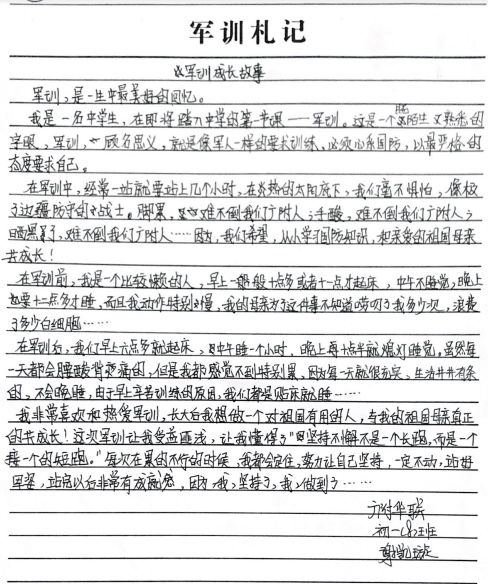 军训札记
军训成长故事
军训，是一生中最美好的回忆。
我是一名中学生，在即将踏入中学的第一节课——军训。这是一个既陌生又熟悉的
字眼，军训，顾名思义，就是像军人一样的要求训练，必须心系国防，以最严格的
态度要求自己。
在军训中，经常一站就要站上几个小时，在炎热的太阳底下，我们毫不惧怕，像极
了边疆防守的战士。脚累，难不倒我们广附人；手酸，难不倒我们广附人；
晒黑了，难不倒我们广附人……因为，我们希望，从小学习国防知识，和亲爱的祖国母亲
共成长！
在军训前，我是个比较懒的人，早上一般十点多或者十一点才起床，中午不睡觉，晚上
要十二点多才睡，而且我动作特别慢，我的母亲为了这件事不知道唠叨了我多少次，浪费
了多少白细胞……
在军训后，我们早上六点多就起床，中午睡一个小时，晚上每十点半就熄灯睡觉，虽然每
一天都会腰酸背疼的，但是我都感觉不到特别累，因为每一天就很充实，生活井井有条
的，不会晚睡，由于早上辛苦训练的原因，我们都是贴床就睡……
我非常喜欢和热爱军训，长大后我想做一个对祖国有用的人，与我的祖国母亲真正
的共成长！这次军训让我受益匪浅，让我懂得了“坚持不懈不是一个长跑，而是一个
接一个的短跑。”每次在累的不行的时候，我都会定住，努力让自己坚持，一定不动，站好
军姿，站完以后非常有成就感，因为，我，坚持了，我，做到了……
广附华联
初一班